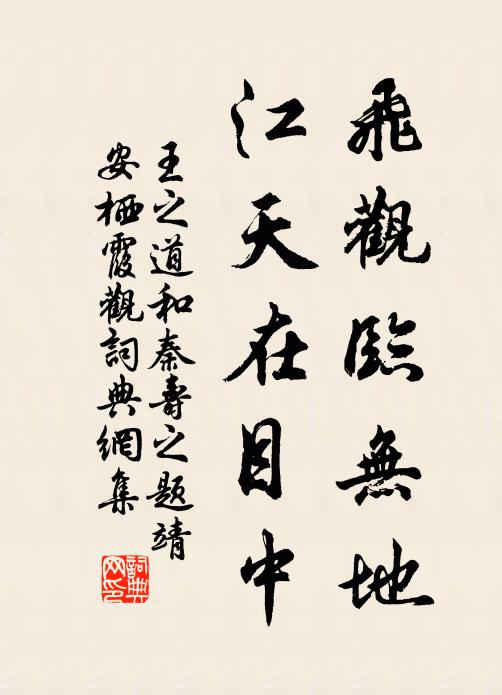 飛觀臨無地
江天在目中
王之道和秦壽之題靖
安栖霞觀詞典網集
詞典
网印